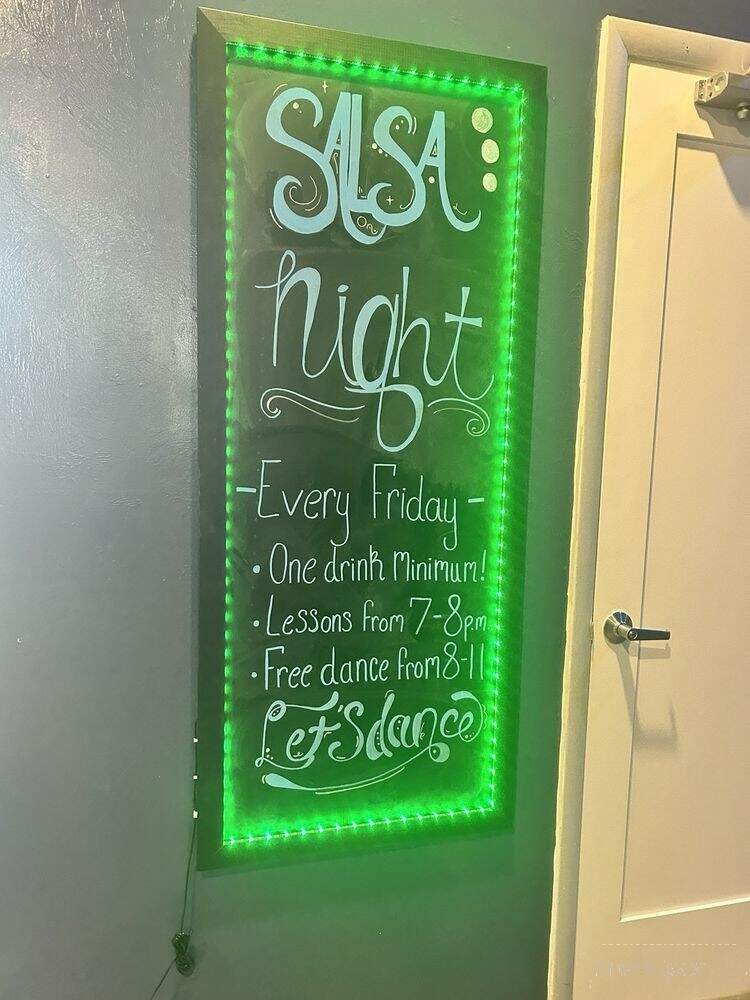 SALSA
night
-Every Friday-
• One drink Minimum!
• Lessons from 7-8p.m
• Free dance from 8-11
Let'S dance